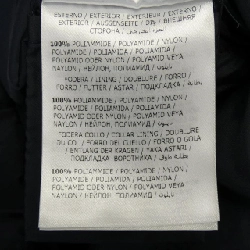 ESTERNO / EXTERIOR / EXTERIEUR / EXTERIOR
/ AUSSENSEITE / DIŞ / ВНЕШНЯЯ
СТОРОНА /
100% POLIAMMIDE / POLYAMIDE / NYLON /
POLYAMIDE / POLIAMIDA / POLIAMIDA /
POLYAMID ODER NYLON / POLYAMID VEYA
NAYLON / НЕЙЛОН, ПОЛИАМИД /
FODERA / LINING / DOUBLURE / FORRO /
FORRO / FUTTER / ASTAR / ПОДКЛАДКА /
100% POLIAMMIDE / POLYAMIDE / NYLON /
POLYAMIDE / POLIAMIDA / POLIAMIDA /
POLYAMID ODER NYLON / POLYAMID VEYA
NAYLON / НЕЙЛОН, ПОЛИАМИД /
FODERA COLLO / COLLAR LINING / DOUBLURE
DU COL / FORRO DE CUELLO / FORRO D GOLA
/ ENTLANG DER KRAGEN / YAKA ASTARI /
ПОДКЛАДКА ВОРОТНИКА /
100% POLIAMMIDE / POLYAMIDE / NYLON /
POLYAMIDE / POLIAMIDA / POLIAMIDA /
POLYAMID ODER NYLON / POLYAMID VEYA
NAYLON / НЕЙЛОН, ПОЛИАМИД /